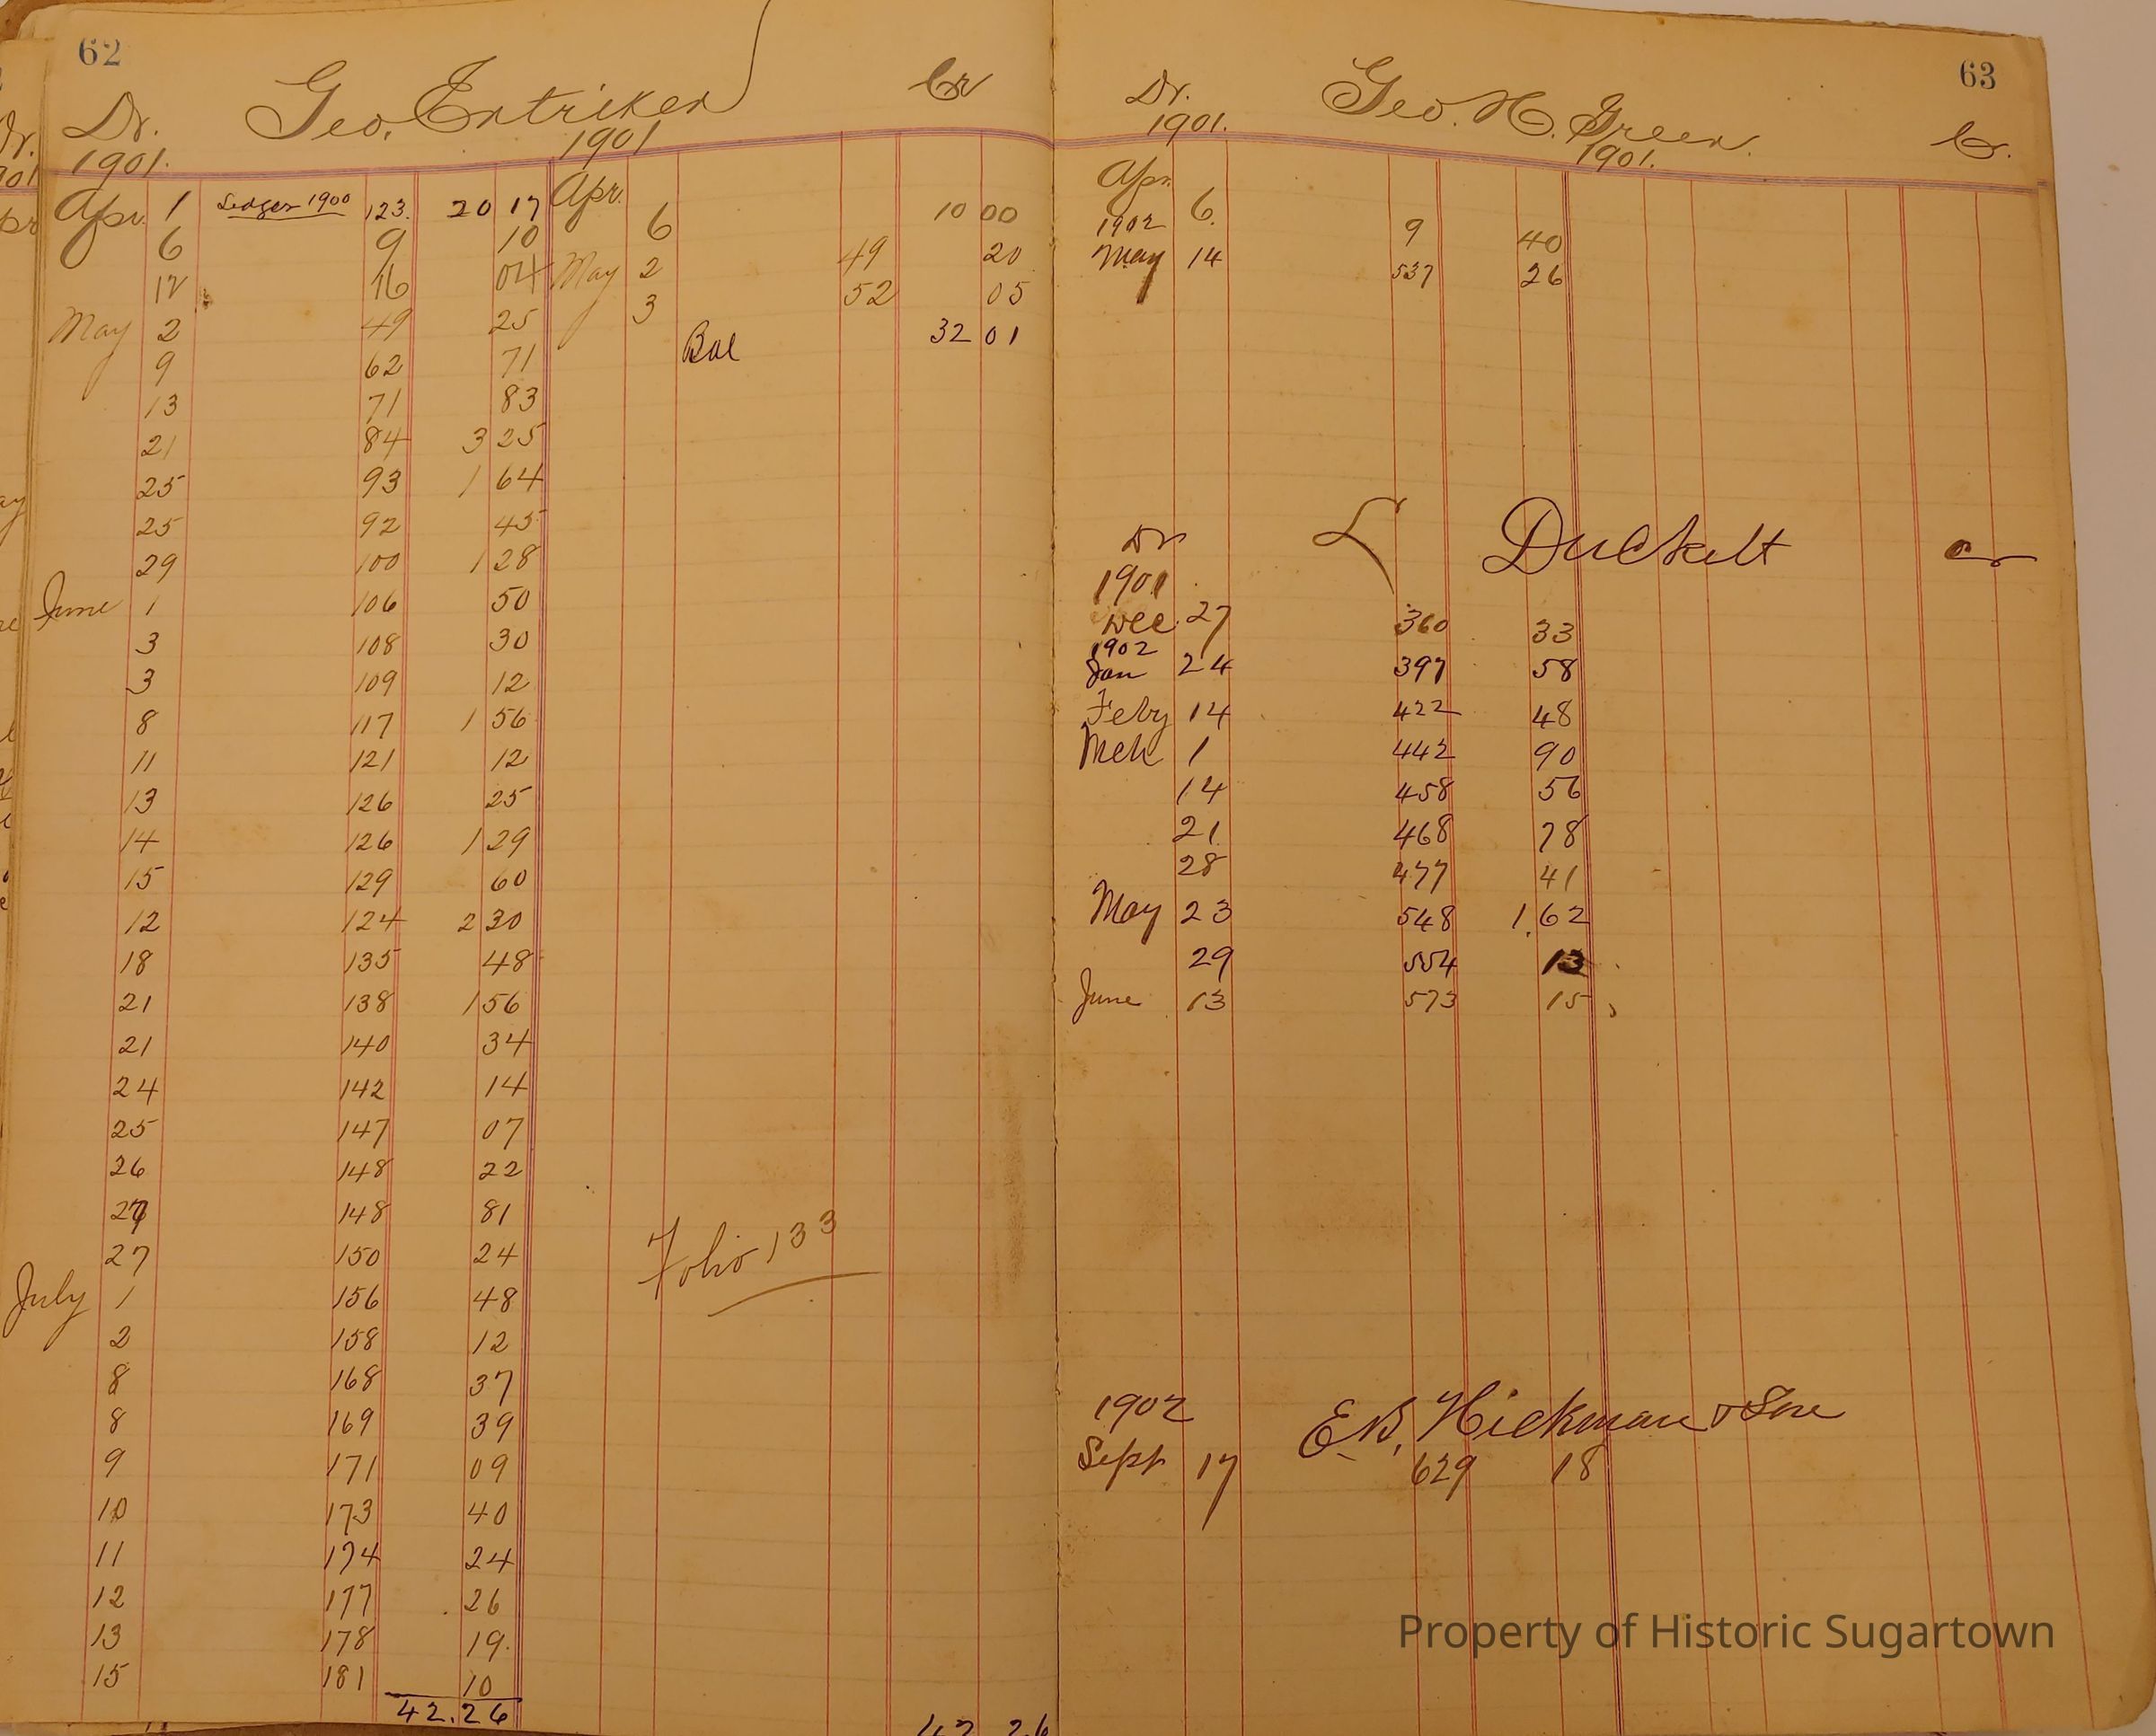 62
Dr. Geo. Entriken Cr
1901. 1901
Apr. 1 Ledger 1900 123. 20 17 Apr. 6 10 00
6 9 10 May 2 49 20
12 16 04 3 52 05
May 2 49 25 Bal 32 01
9 62 71
13 71 83
21 84 3 25
25 93 1 64
25 92 45
29 100 1 28
June 1 106 50
3 108 30
3 109 12
8 117 1 56
11 121 12
13 126 25
14 126 1 29
15 129 60
12 124 2 30
18 135 48
21 138 1 56
21 140 34
24 142 14
25 147 07
26 148 22
27 148 81
27 150 24
Folio 133
July 1 156 48
2 158 12
8 168 37
8 169 39
9 171 09
10 173 40
11 174 24
12 177 26
13 178 19.
15 181 10
42.26 42 26
63
Dr. Geo. H. Green. Cr.
1901. 1901.
Apr. 6. 9 40
1902
May 14 537 26
Dr L Duckett Cr
1901
Dec. 27 360 33
1902
Jan 24 397 58
Feby 14 422 48
Mch 1 442 90
14 458 56
21 468 78
28 477 41
May 23 548 1.62
29 554 13
June 13 573 15
1902 E.B. Hickman & Son
Sept 17 629 18
Property of Historic Sugartown